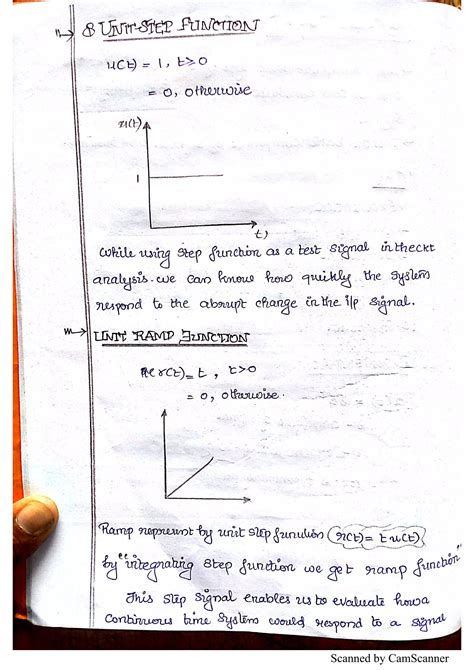 ii) → 8 UNIT STEP FUNCTION
u(t) = 1, t≥0
= 0, otherwise
u(t)
1
t)
While using step function as a test signal in the ckt
analysis. we can know how quickly the system
respond to the abrupt change in the i/p signal.
→ UNIT RAMP FUNCTION
r(t) = t, t>0
= 0, otherwise.
Ramp represent by unit step function (r(t) = t u(t)
by "integrating step function we get ramp function"
This step signal enables us to evaluate how a
continuous time system would respond to a signal
Scanned by CamScanner